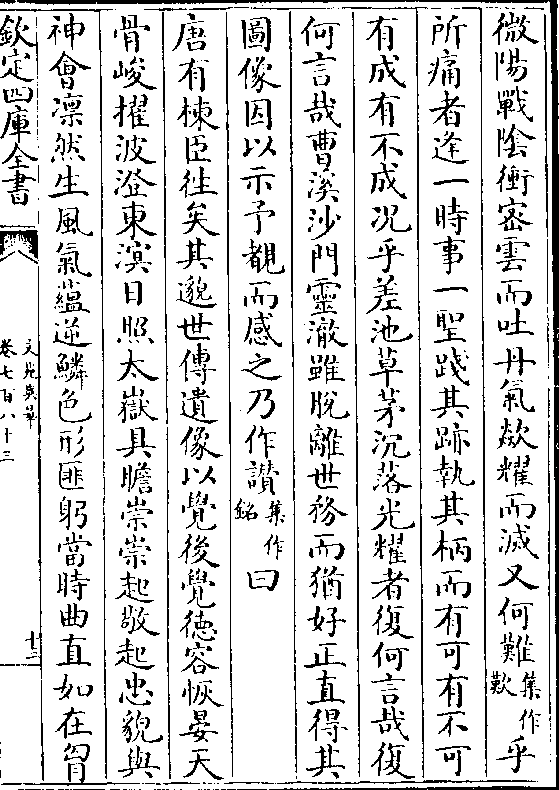 微陽戰陰衝密雲而吐丹氣歘耀而滅又何難集作歎乎
所痛者逢一時事一聖踐其跡執其柄而有可有不可
有成有不成况乎差池草茅沉落光耀者復何言哉復
何言哉曹溪沙門靈澈雖脫離世務而猶好正直得其
圖像因以示予覩而感之乃作讃集作銘曰
唐有棟臣徃矣其邈世傳遺像以覺後覺徳容恢晏天
骨峻擢波澄東溟日照太嶽具瞻崇崇起敬起忠貌與
神會凛然生風氣蘊逆鱗色形匪躬當時曲直如在胷
欽定四庫全書
文苑英華
卷七百八十三
十三